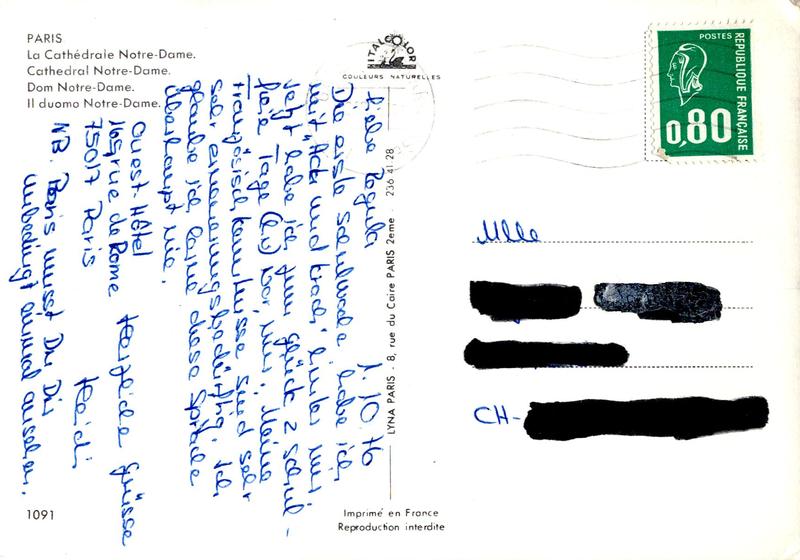 PARIS
La Cathédrale Notre-Dame.
Cathedral Notre-Dame.
Dom Notre-Dame.
Il duomo Notre-Dame.
ITALCOLOR
COULEURS NATURELLES
POSTES
REPUBLIQUE FRANÇAISE
0,80
1.10.76
Liebe Regula
Die erste Schulwoche habe ich
mit "Ach und Krach" hinter mir
Jetzt habe ich zum Glück 2 schul-
freie Tage vor mir. Meine
Französischkenntnisse sind sehr
sehr erneuerungsbedürftig. Ich
glaube ich lerne diese Sprache
überhaupt nie.
Herzliche Grüsse
Heidi
Ouest Hôtel
165 rue de Rome
75017 Paris
NB. Paris musst Du Dir
unbedingt einmal ansehen.
LYNA PARIS - 8, rue du Caire PARIS 2eme 236 41 28
Mlle
CH-
1091
Imprimé en France
Reproduction interdite